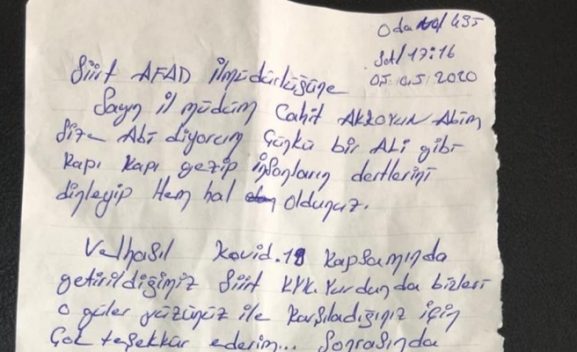 Oda no 435
Saat 17:16
05.05.2020
Siirt AFAD il müdürlüğüne
Sayın il müdürüm Cahit AKKOYUN Abim
Size Abi diyorum Çünkü bir Abi gibi
Kapı kapı gezip insanların dertlerini
dinleyip Hem hal oldunuz.
Velhasıl Kovid.19 kapsamında
getirildiğimiz Siirt KYK. Yurdunda bizleri
o güler yüzünüz ile karşıladığınız için
Çok teşekkür ederim... Sonrasında